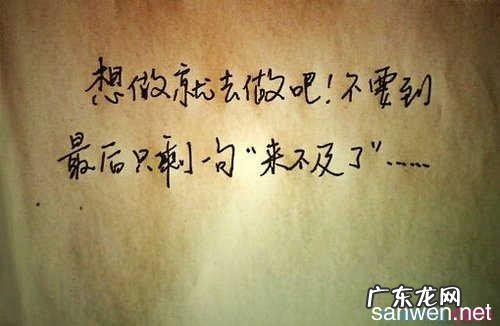 想做就去做吧！不要到
最后只剩一句“来不及了”……
广东龙网
sanwen.net